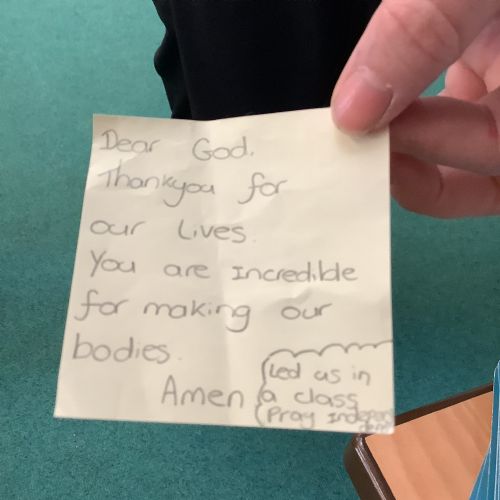 Dear God.
Thankyou for
our lives.
You are Incredible
for making our
bodies.
Amen
Led us in
a class
Pray Indepen
dent